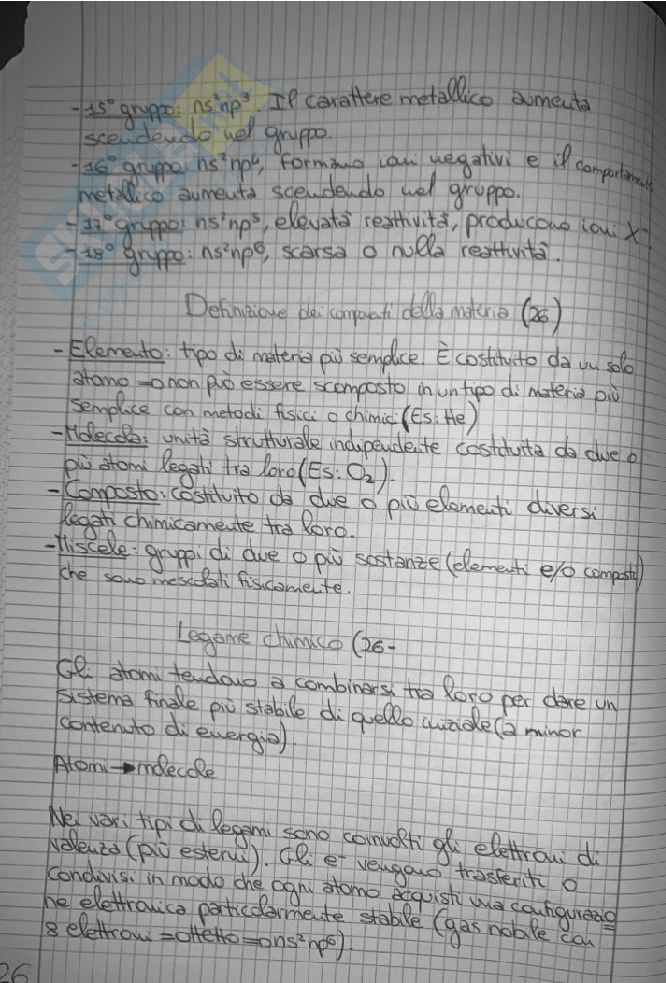 -15° gruppo: ns²np³. Il carattere metallico aumenta
scendendo nel gruppo.
-16° gruppo: ns²np⁴, formano ioni negativi e il comportamento
metallico aumenta scendendo nel gruppo.
-17° gruppo: ns²np⁵, elevata reattività, producono ioni X⁻.
-18° gruppo: ns²np⁶, scarsa o nulla reattività.
Definizione dei componenti della materia (26)
-Elemento: tipo di materia più semplice. È costituito da un solo
atomo →non può essere scomposto in un tipo di materia più
semplice con metodi fisici o chimici (Es: He)
-Molecola: unità strutturale indipendente costituita da due o
più atomi legati tra loro (Es: O₂).
-Composto: costituito da due o più elementi diversi
legati chimicamente tra loro.
-Miscele: gruppi di due o più sostanze (elementi e/o composti)
che sono mescolati fisicamente.
Legame chimico (26-
Gli atomi tendono a combinarsi tra loro per dare un
sistema finale più stabile di quello iniziale (a minor
contenuto di energia).
Atomi→molecole
Nei vari tipi di legami sono coinvolti gli elettroni di
valenza (più esterni). Gli e⁻ vengono trasferiti o
condivisi in modo che ogni atomo acquisti una configurazio
ne elettronica particolarmente stabile (gas nobile con
8 elettroni = ottetto =>ns²np⁶).
26